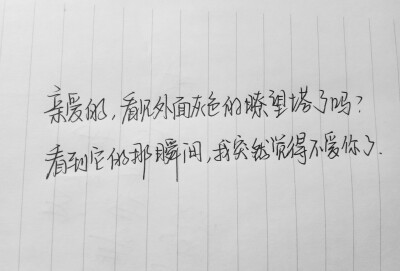 亲爱的，看见外面灰色的瞭望塔了吗？
看到它的那瞬间，我突然觉得不爱你了.